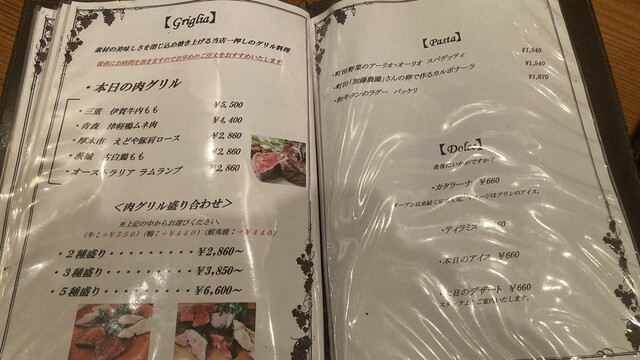 【Griglia】
素材の美味しさを閉じ込め焼き上げる当店一押しのグリル料理
提供にお時間を頂きますのでお早めのご注文をおすすめいたします
・本日の肉グリル
・三重 伊賀牛内もも ¥5,500
・青森 津軽鴨ムネ肉 ¥4,400
・厚木市 えどや豚肩ロース ¥2,860
・茨城 古白鶏もも ¥2,860
・オーストラリア ラムランプ ¥2,860
＜肉グリル盛り合わせ＞
※上記の中からお選びください。
(牛：+¥550)(鴨：+¥440)(蝦夷鹿：+¥440)
・2種盛り・・・・・・・・・¥2,860～
・3種盛り・・・・・・・・・¥3,850～
・5種盛り・・・・・・・・・¥6,600～
【Pasta】
・町田野菜のアーリオ・オーリオ スパゲッティ ¥1,540
・町田「加藤農園」さんの卵で作るカルボナーラ ¥1,540
・和牛タンのラグー パッケリ ¥1,870
【Dolce】
食後にいかがですか?
・カタラーナ ¥660
はプリンのアイス。
・ティラミス
・本日のアイス ¥660
・本日のデザート ¥660
スタッフよりご案内いたします。